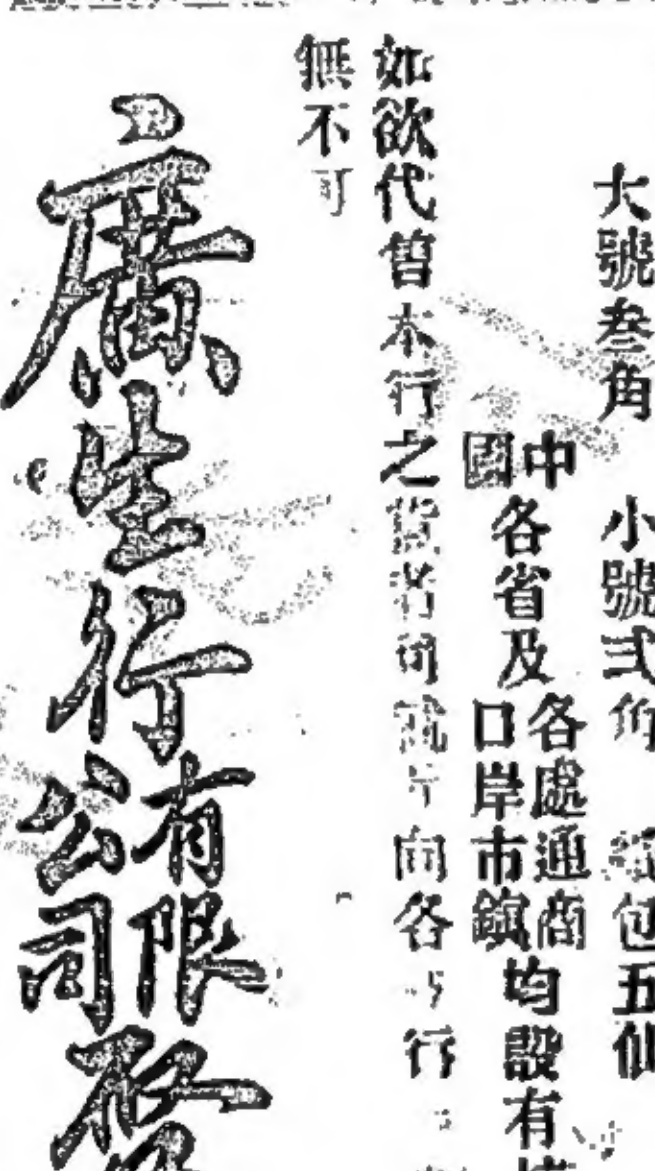 大號叁角 小號弍角 包五仙
中國各省及各處通商口岸市鎮均設有
如欲代售本行之貨者 向各 行
無不可
廣生行有限公司啓